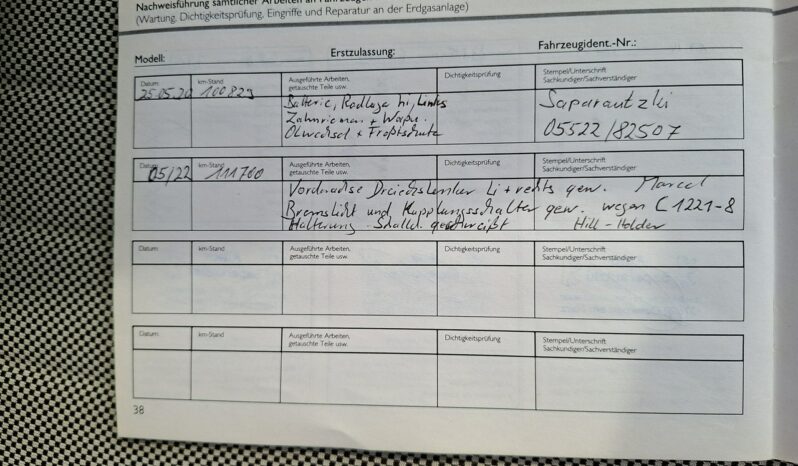 Nachweisführung sämtlicher Arbeiten an Fahrzeug
(Wartung, Dichtigkeitsprüfung, Eingriffe und Reparatur an der Erdgasanlage)
Modell: Erstzulassung: Fahrzeugident.-Nr.:
Datum km-Stand Ausgeführte Arbeiten, getauschte Teile usw. Dichtigkeitsprüfung Stempel/Unterschrift Sachkundiger/Sachverständiger
25.05.20 100823 Batterie, Radlage hi, Links
Zahnriemen + Wapu.
Ölwechsel + Frostschutz
Saparautzki
05522/82507
Datum km-Stand Ausgeführte Arbeiten, getauschte Teile usw. Dichtigkeitsprüfung Stempel/Unterschrift Sachkundiger/Sachverständiger
05/22 111700
Vorderachse Dreieckslenker Li + rechts gew. Marcel
Bremslicht und Kupplungsschalter gew. wegen C1221-8
Halterung Schalld. geschweißt Hill-Holder
Datum km-Stand Ausgeführte Arbeiten, getauschte Teile usw. Dichtigkeitsprüfung Stempel/Unterschrift Sachkundiger/Sachverständiger
Datum km-Stand Ausgeführte Arbeiten, getauschte Teile usw. Dichtigkeitsprüfung Stempel/Unterschrift Sachkundiger/Sachverständiger
38